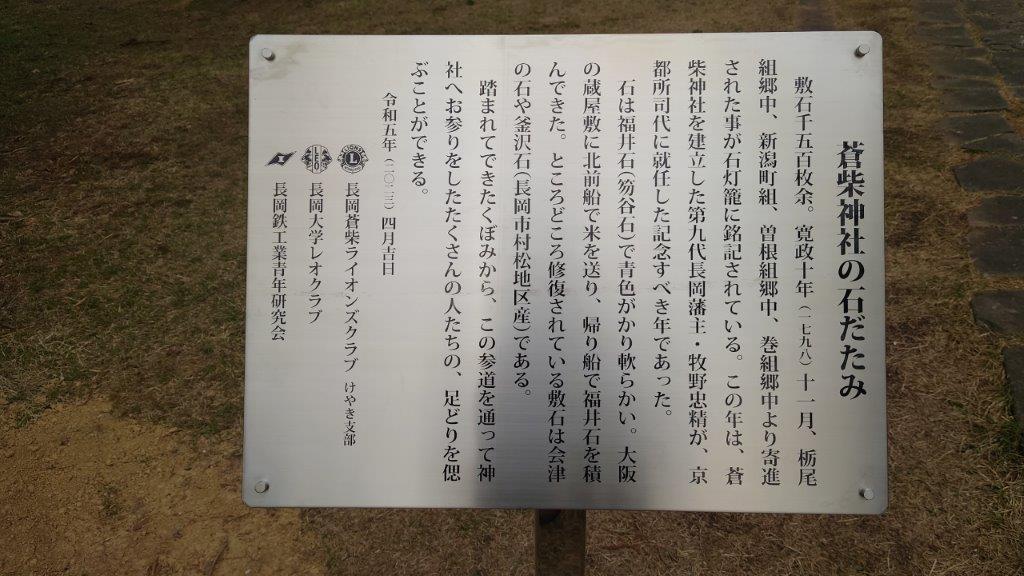 蒼柴神社の石だたみ
敷石千五百枚余。寛政十年(一七九八)十一月、栃尾
組郷中、新潟町組、曽根組郷中、巻組郷中より寄進
された事が石灯籠に銘記されている。この年は、蒼
柴神社を建立した第九代長岡藩主・牧野忠精が、京
都所司代に就任した記念すべき年であった。
石は福井石(笏谷石)で青色がかり軟らかい。大阪
の蔵屋敷に北前船で米を送り、帰り船で福井石を積
んできた。ところどころ修復されている敷石は会津
の石や釜沢石(長岡市村松地区産)である。
踏まれてできたくぼみから、この参道を通って神
社へお参りをしたたくさんの人たちの、足どりを偲
ぶことができる。
令和五年(二〇二三)四月吉日
長岡蒼柴ライオンズクラブ けやき支部
長岡大学レオクラブ
長岡鉄工業青年研究会
LIONS
L
LEO